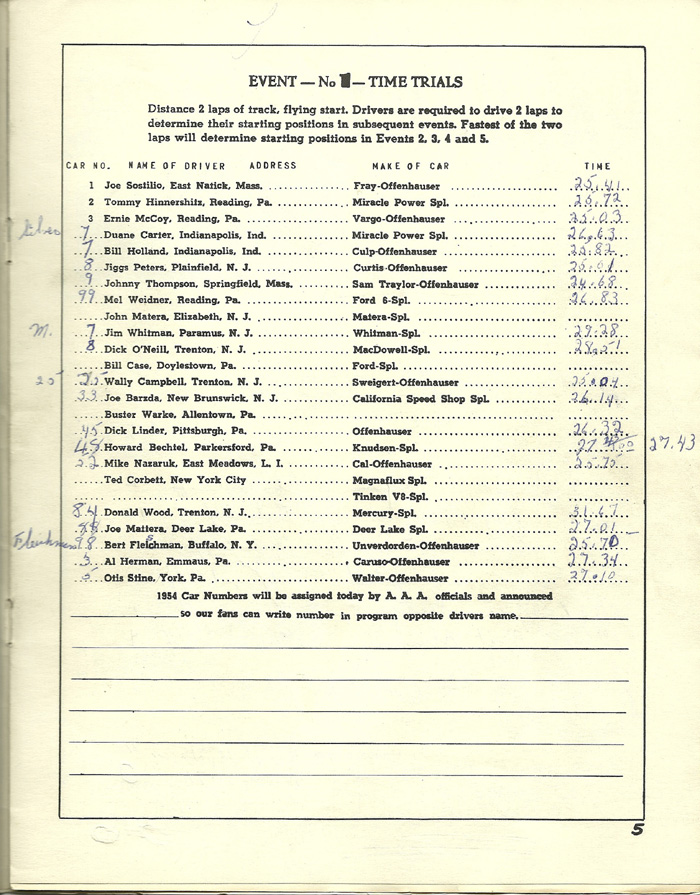 EVENT — No 1 — TIME TRIALS
Distance 2 laps of track, flying start. Drivers are required to drive 2 laps to
determine their starting positions in subsequent events. Fastest of the two
laps will determine starting positions in Events 2, 3, 4 and 5.
CAR NO. NAME OF DRIVER ADDRESS MAKE OF CAR TIME
1 Joe Sostilio, East Natick, Mass. Fray-Offenhauser 25.41
2 Tommy Hinnershitz, Reading, Pa. Miracle Power Spl. 25.72
3 Ernie McCoy, Reading, Pa. Vargo-Offenhauser 25.03
7 Duane Carter, Indianapolis, Ind. Miracle Power Spl. 26.63
7 Bill Holland, Indianapolis, Ind. Culp-Offenhauser 25.82
8 Jiggs Peters, Plainfield, N. J. Curtis-Offenhauser
9 Johnny Thompson, Springfield, Mass. Sam Traylor-Offenhauser 24.68
99 Mel Weidner, Reading, Pa. Ford 6-Spl. 26.83
John Matera, Elizabeth, N. J. Matera-Spl.
M. 7 Jim Whitman, Paramus, N. J. Whitman-Spl. 29.28
8 Dick O'Neill, Trenton, N. J. MacDowell-Spl. 28.51
Bill Case, Doylestown, Pa. Ford-Spl.
25 25 Wally Campbell, Trenton, N. J. Sweigert-Offenhauser 25.04
33 Joe Barzda, New Brunswick, N. J. California Speed Shop Spl. 26.14
Buster Warke, Allentown, Pa.
45 Dick Linder, Pittsburgh, Pa. Offenhauser 26.32
48 Howard Bechtel, Parkersford, Pa. Knudsen-Spl. 27.43
52 Mike Nazaruk, East Meadows, L. I. Cal-Offenhauser 25.75
Ted Corbett, New York City Magnaflux Spl.
Tinken V8-Spl.
84 Donald Wood, Trenton, N. J. Mercury-Spl. 31.67
Joe Mattera, Deer Lake, Pa. Deer Lake Spl. 27.01
98 Bert Fleischman, Buffalo, N. Y. Unverdorden-Offenhauser 25.70
3 Al Herman, Emmaus, Pa. Caruso-Offenhauser 27.34
5 Otis Stine, York, Pa. Walter-Offenhauser 27.10
1954 Car Numbers will be assigned today by A. A. A. officials and announced
so our fans can write number in program opposite drivers name.
5